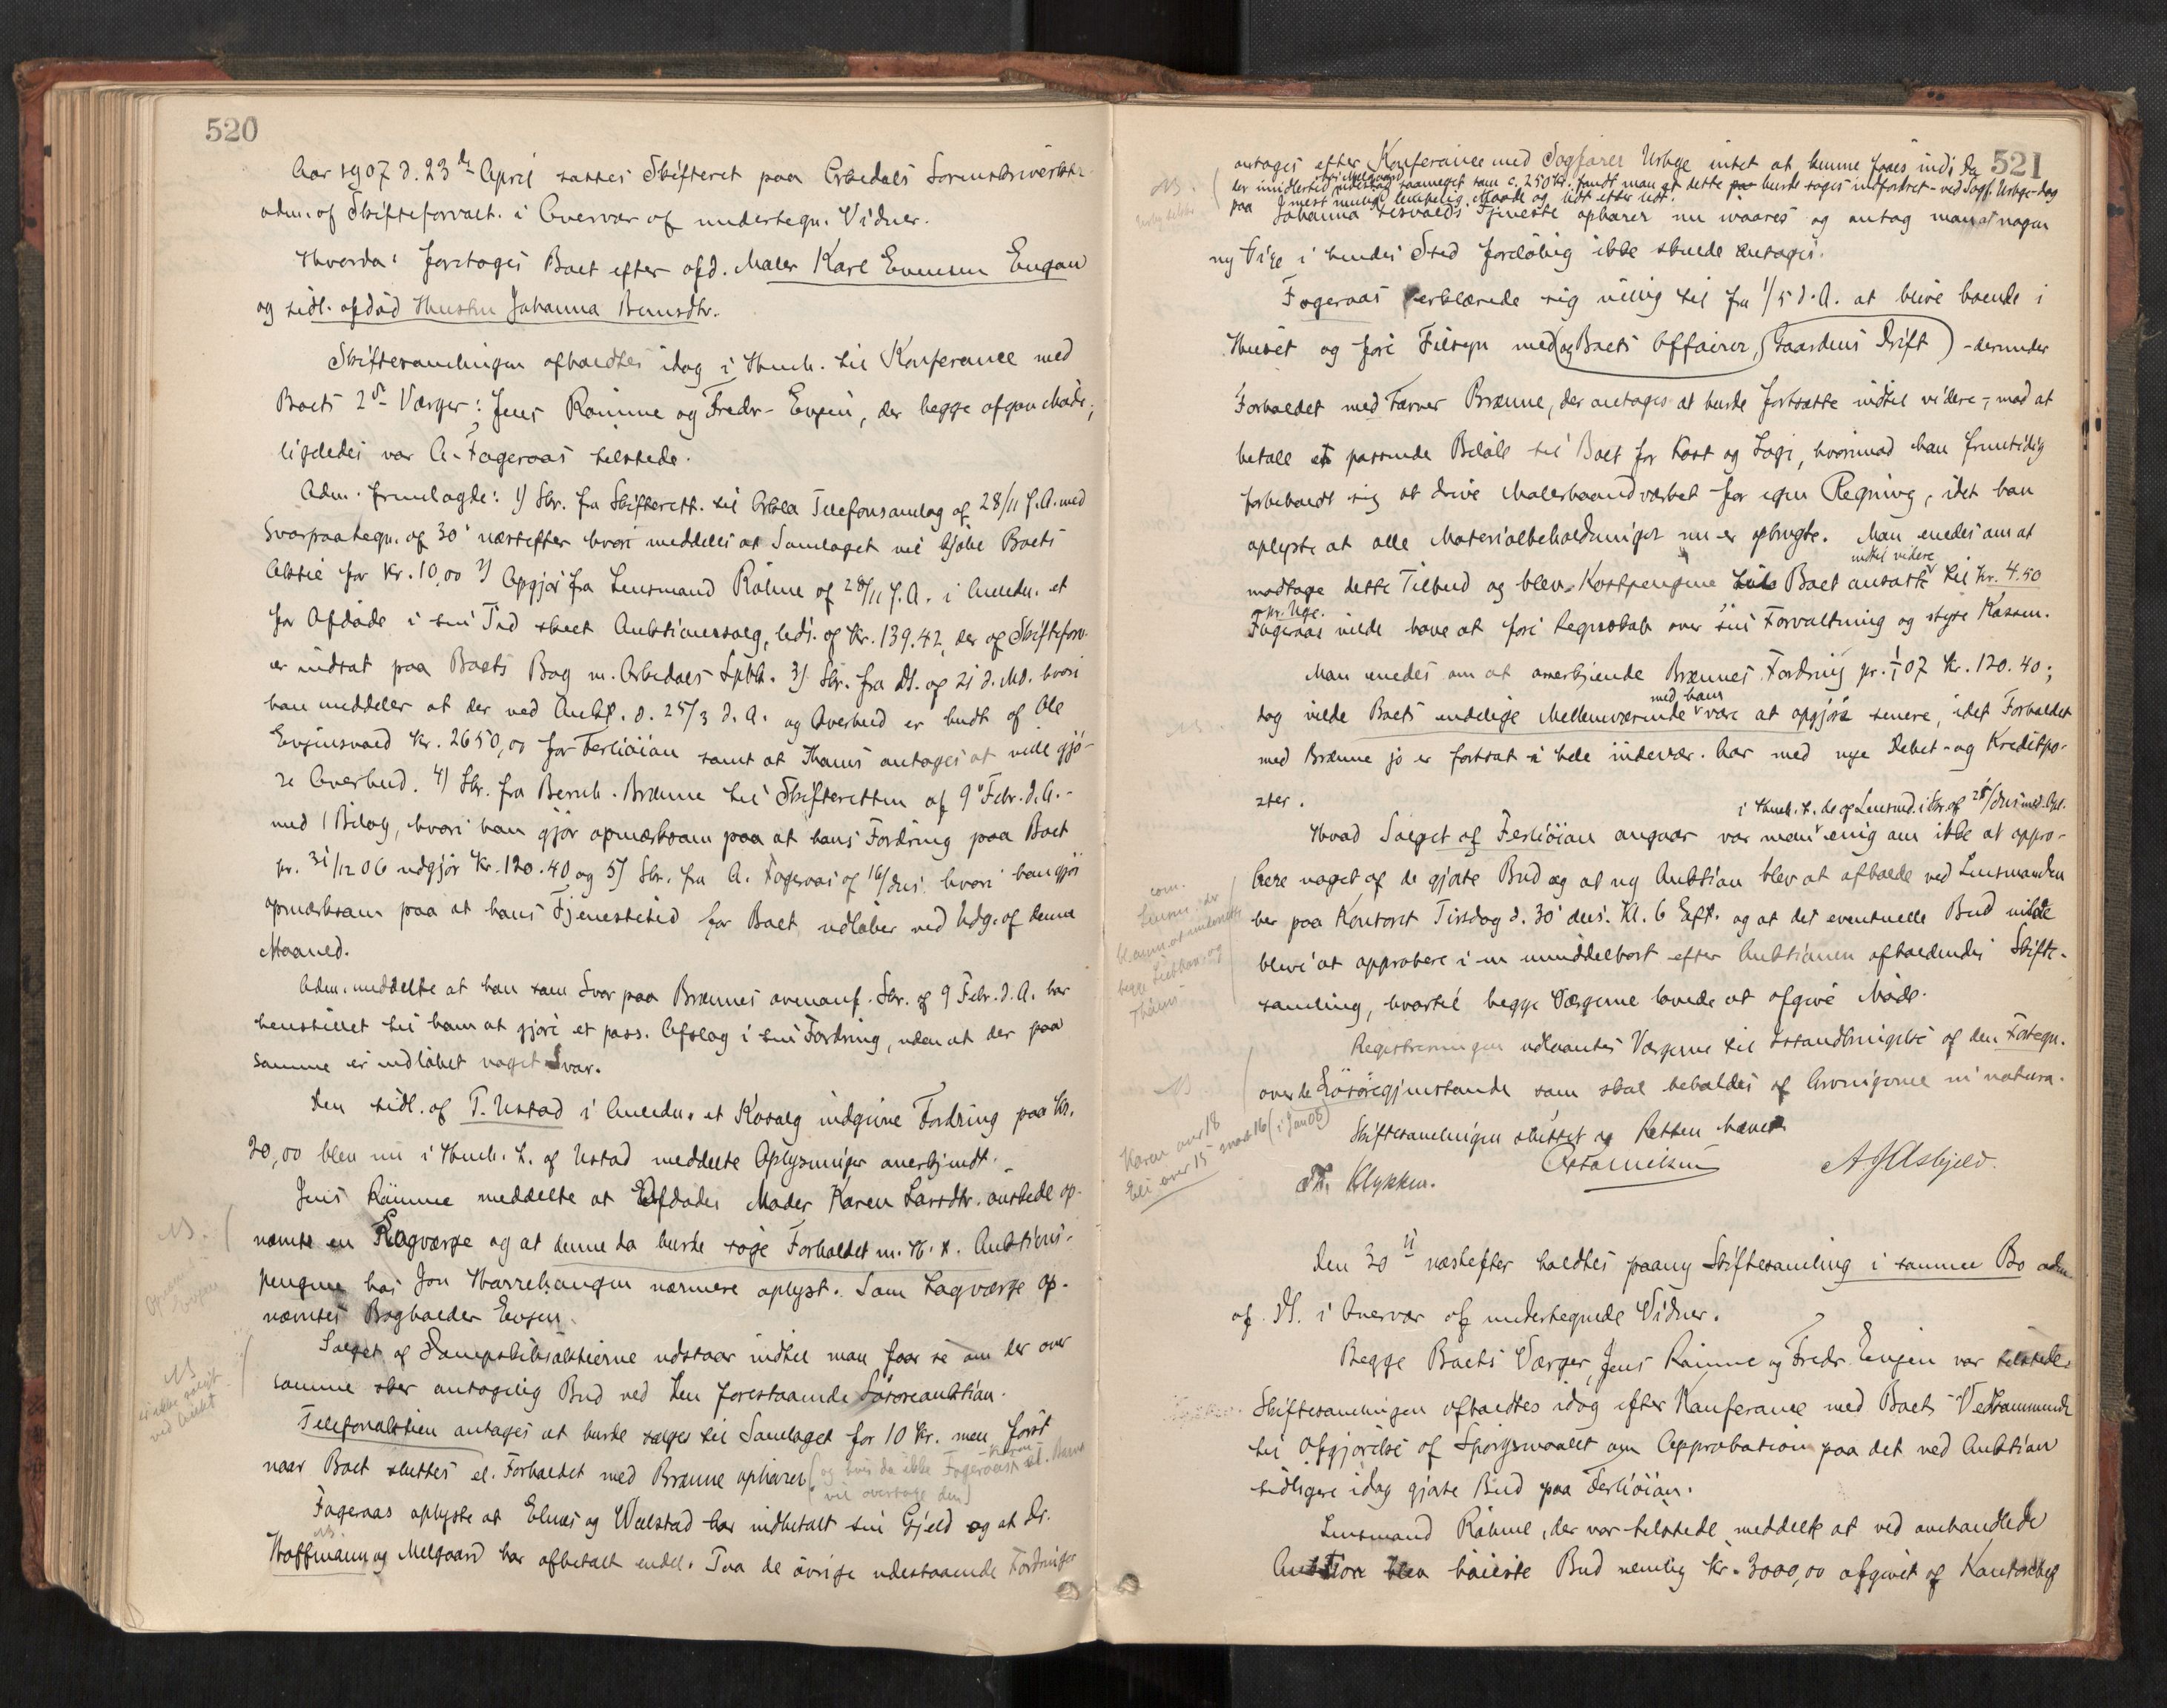 520
Aar 1907 d. 23de April sattes Skifteret paa Orkedals Sorenskriverktr.
adm. af Skifteforvalt. i Overvær af undertegn. Vidner.
Hvorda: foretoges Boet efter afd. Maler Karl Evensen Engan
og tidl. afdød Hustru Johanna Berntsdtr.
Skiftesamlingen afholdtes idag i Henh. til Konferance med
Boets 2de Værger: Jens Rømme og Fredr. Evjen, der begge afgav Møde;
ligeledes var A. Fageraas tilstede.
Adm. fremlagde: 1) Skr. fra Skifterett. til Orkla Telefonsamlag af 28/11 f.A. med
Svarpaategn. af 30' næstefter hvori meddeles at Samlaget vil kjøbe Boets
Aktie for Kr. 10,00 2) Opgjør fra Lensmand Röhme af 28/11 f.A. i Anledn. et
for Afdøde i sin Tid skeet Auktionssalg, lydi. af Kr. 139.42, der af Skifteforv.
er indsat paa Boets Bog m. Orkedals Spbk. 3) Skr. fra ds. af 21 d.Md. hvori
han meddeler at der ved Aukt. d. 25/3 d.A. og Overbud er budt af Ole
Evjensvold Kr. 2650,00 for Ferliöian samt at Thams antages at ville gjø-
re Overbud. 4) Skr. fra Bernh. Brænne til Skifteretten af 9' Febr. d.A.-
med 1 Bilag, hvori han gjør opmærksom paa at hans Fordring paa Boet
pr. 31/12 06 udgjør Kr. 120.40 og 5) Skr. fra A. Fageraas af 16/ds hvori han gjør
opmærksom paa at hans Tjenestetid for Boet udløber ved Udg. af denne
Maaned.
Adm. meddelte at han som Svar paa Brænnes ovennf. Skr. af 9 Febr. d.A. har
henstillet til ham at gjøre et pass. Afslag i sin Fordring, uden at der paa
samme er indløbet noget Svar.
Den tidl. af T. Ustad i Anledn. et Kosalg indgivne Fordring paa Kr.
20,00 blev nu i Henh. t. af Ustad meddelte Oplysninger anerkjendt.
Jens Rømme meddelte at Afdødes Moder Karen Larsdtr. ønskede op-
NB.
nævnt en Lagværge og at denne da burde søge Forholdet m. H. t. Auktions-
pengene hos Jon Harrehaugen nærmere oplyst. Som Lagværge op-
Opnævnt Evjen
nævntes Bogholder Evjen.
Salget af Dampskibsaktierne udstaar indtil man faar se om der over
NB
samme sker antagelig Bud ved den forestaaende Løsøreauktion.
er ikke solgt ved Aukt
Telefonaktien antages at burde sælges til Samlaget for 10 Kr. men først
naar Boet sluttes el. Forholdet med Brænne ophører (og hvis da ikke Fageraas el.
vil overtage den)
Fageraas oplyste at Elnæs og Wulstad har indbetalt sin Gjeld og at Dr.
NB
Hoffmann og Melgaard har afbetalt endel. Paa de øvrige udestaaende Fordringer
521
antages efter Konferance med Sagfører Urbye intet at kunne faaes ind; da
hos Melgaard
der imidlertid udestaar saameget som c. 250 Kr. fandt man at dette burde søges indfordret - ved Sagf. Urbye - dog
NB.
paa mest mulig lempelig Maade og lidt efter lidt.
Johanna Tjeneste ophører nu ivaares og antog man at nogen
ny Pige i hendes Sted foreløbig ikke skulde antages.
Fageraas erklærede sig villig til fra 1/5 d.A. at blive boende i
Huset og føre Tilsyn med (og Boets Affairer, Gaardens Drift) - derunder
Forholdet med Farver Brænne, der antages at burde fortsætte indtil videre -, mod at
betale et passende Beløb til Boet for Kost og Logi, hvorimod han fremtidig
forbeholdt sig at drive Malerhaandværket for egen Regning, idet han
oplyste at alle Materialbeholdninger nu er opbrugte. Man enedes om at
indtil videre
modtage dette Tilbud og blev Kostpengene til Boet ansatt til Kr. 4.50
pr. Uge.
Fageraas vilde have at føre Regnskab over sin Forvaltning og styre Kassen.
Man enedes om at anerkjende Brænnes Fordring pr. 1/1 07 Kr. 120.40;
med ham
dog vilde Boets endelige Mellemværende være at opgjøre senere, idet Forholdet
NB.
med Brænne jo er fortsat i hele indevær. Aar med nye Debet- og Kreditpo-
ster.
i Henh. t. de af Lensmd. i Skr. af 25/ds med. Opl.
Hvad Salget af Ferliöian angaar var man enig om ikke at appro-
bere noget af de gjorte Bud og at ny Auktion blev at afholde ved Lensmanden
her paa Kontoret Tirsdag d. 30' ds. Kl. 6 Eft. og at det eventuelle Bud vilde
blive at approbere i en umiddelbart efter Auktionen afholdendes Skifte-
samling, hvortil begge Værgerne lovede at afgive Møde.
Thams
Registreringen udlaantes Værgerne til Istandbringelse af den Fortegn.
NB
over de Løsøregjenstande som skal beholdes af Arvingerne in natura.
Karen over 18
Eli over 15 snart 16 (i Jan 08)
Skiftesamlingen sluttet og Retten hævet.
Th. Klykken.
A J Asbjeld.
Den 30' næstefter holdtes paany Skiftesamling i samme Bo adm
af ds. i Overvær af undertegnede Vidner.
Begge Boets Værger, Jens Rømme og Fredr. Evjen var tilstede.
Skiftesamlingen afholdtes idag efter Konferance med Boets Vedkommende
til Afgjørelse af Spørgsmaalet om Approbation paa det ved Auktion
tidligere idag gjorte Bud paa Ferliöian.
Lensmand Röhme, der var tilstede meddelte at ved omhandlede
Auktion blev høieste Bud nemlig Kr. 3000,00 afgivet af Kontorchef